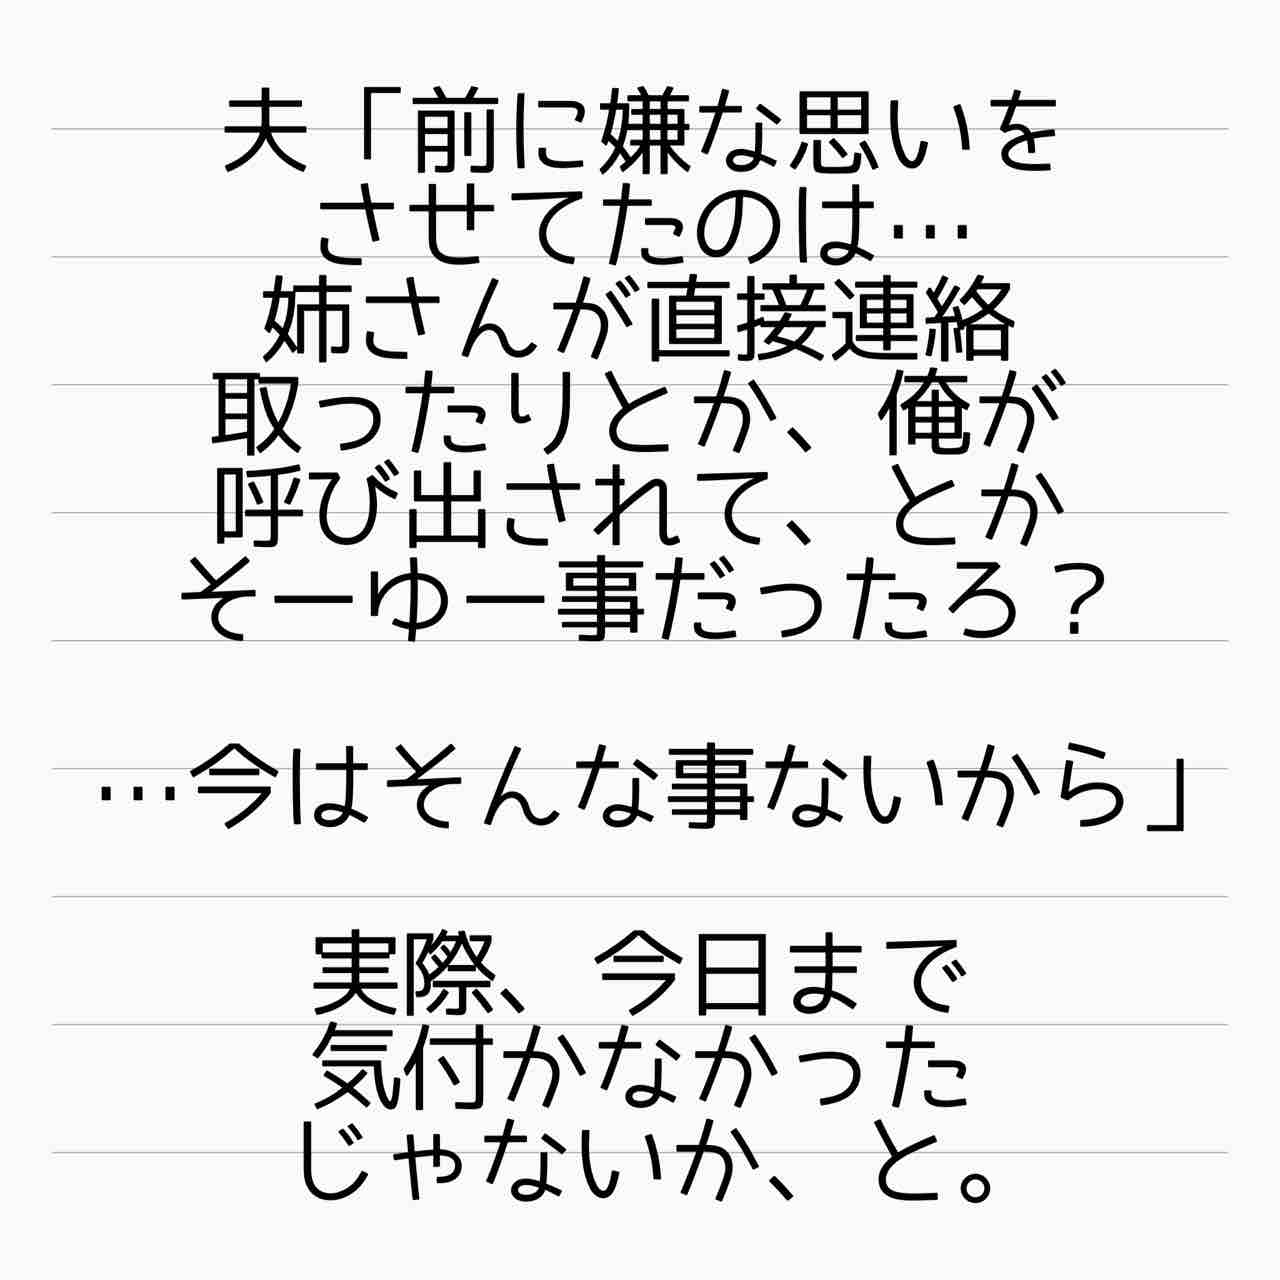 夫「前に嫌な思いを
させてたのは…
姉さんが直接連絡
取ったりとか、俺が
呼び出されて、とか
そーゆー事だったろ？
…今はそんな事ないから」
実際、今日まで
気付かなかった
じゃないか、と。